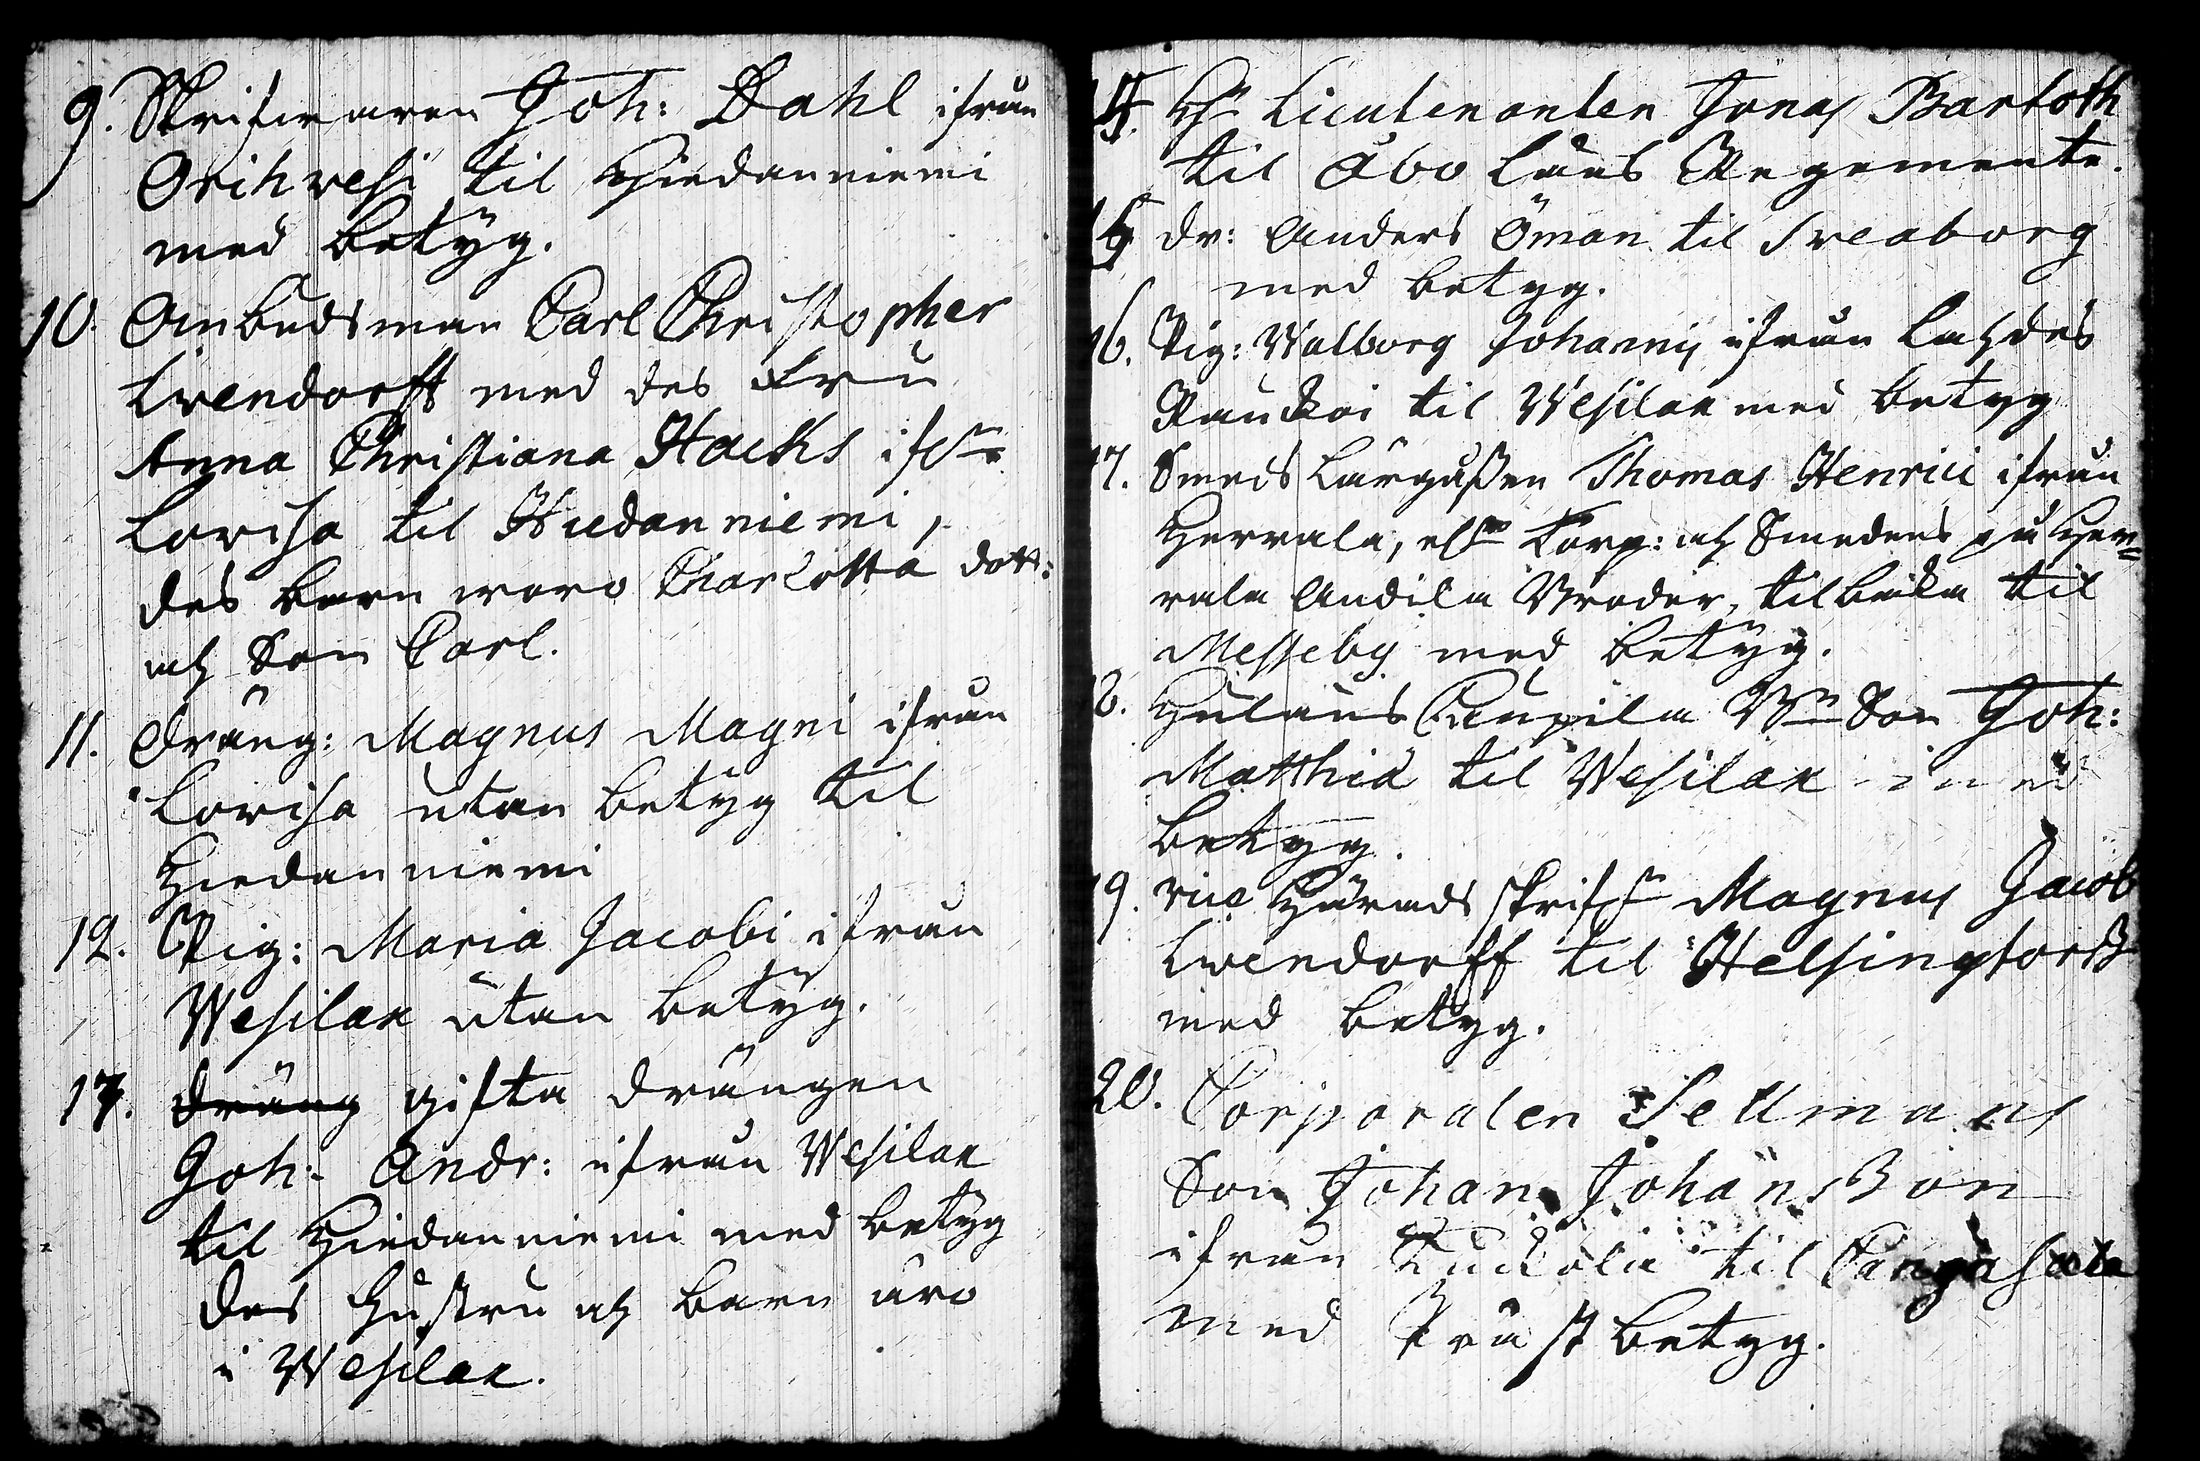 9. Skrifwaren Joh: Dahl ifrån
Orihvesi til Hiedanniemi
med betÿg.
10. Ombudsman Carl Christopher
Lwendorff med des Fru
Anna Christiana Hacks
Lovisa til Hiedanniemi,
des barn woro Charlotta dott:
och Son Carl.
11. Dräng: Magnus Magni ifrån
Lovisa utan betÿg til
Hiedanniemi
12. Pig: Maria Jacobi ifrån
Wesilax utan betÿg.
13. dräng gifta drängen
Joh: Andr: ifrån Wesilax
til Hiedanniemi med betÿg
des hustru och barn äro
i Wesilax.
14. Hr Lieutenanten Jonas Bartoth
til Åbo Läns Regemente.
15 dr: Anders Öman til Sveaborg
med betyg.
16. Pig: Walborg Johannis ifrån
til Wesilax med betyg
17. Smeds Lärgåßen Thomas Henrici ifrån
Herrala, Torp: och Smedens på Her=
rala Andila Broder, tilbaka til
Messeby med betÿg.
18. Son Joh:
Matthiæ til Wesilax med
betyg.
19. vice Härads skrif Magnus Jacob
Lwendorff til Helsingforß
med betyg.
20. Corporalen Sellmans
Son Johan Johanßon
ifrån til
med Präst betyg.